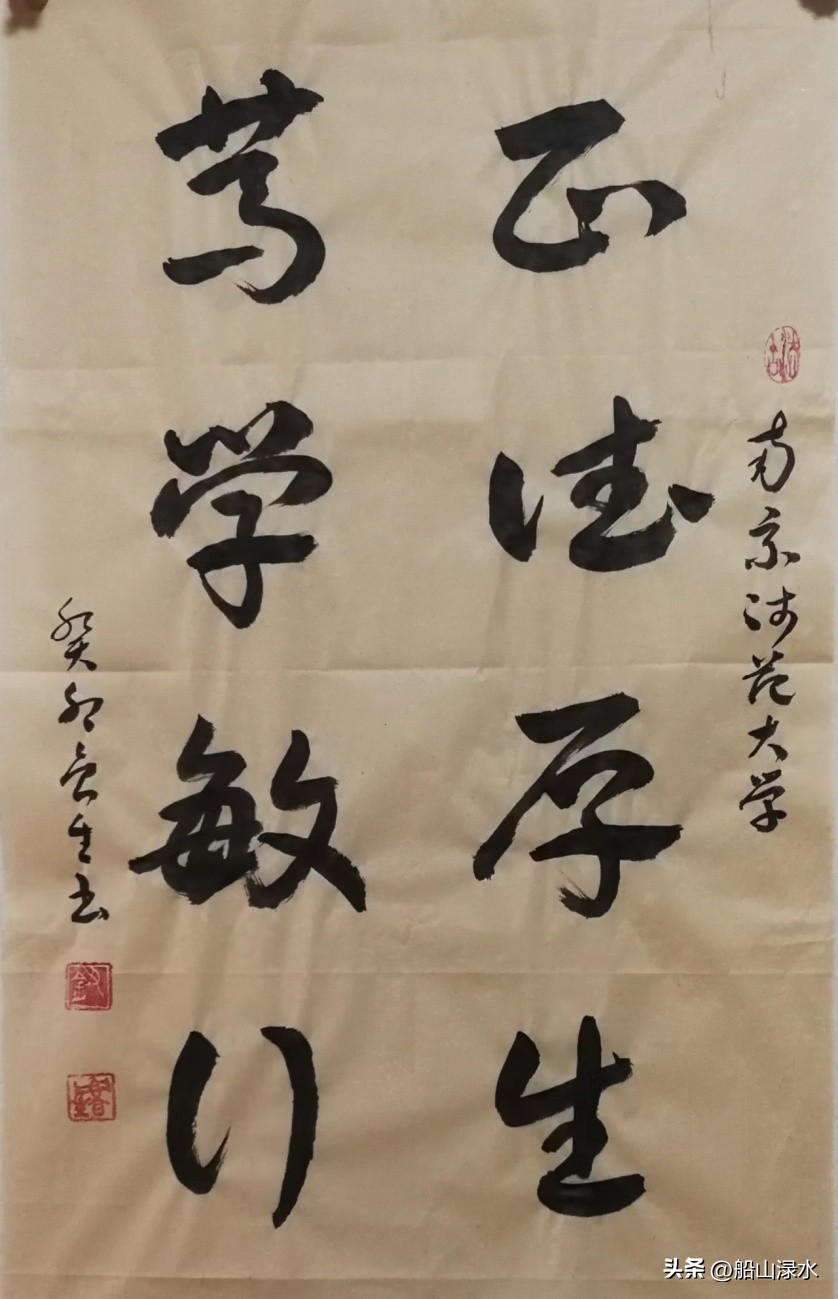 南京师范大学
正德厚生
笃学敏行
癸卯生书
头条 @船山渌水